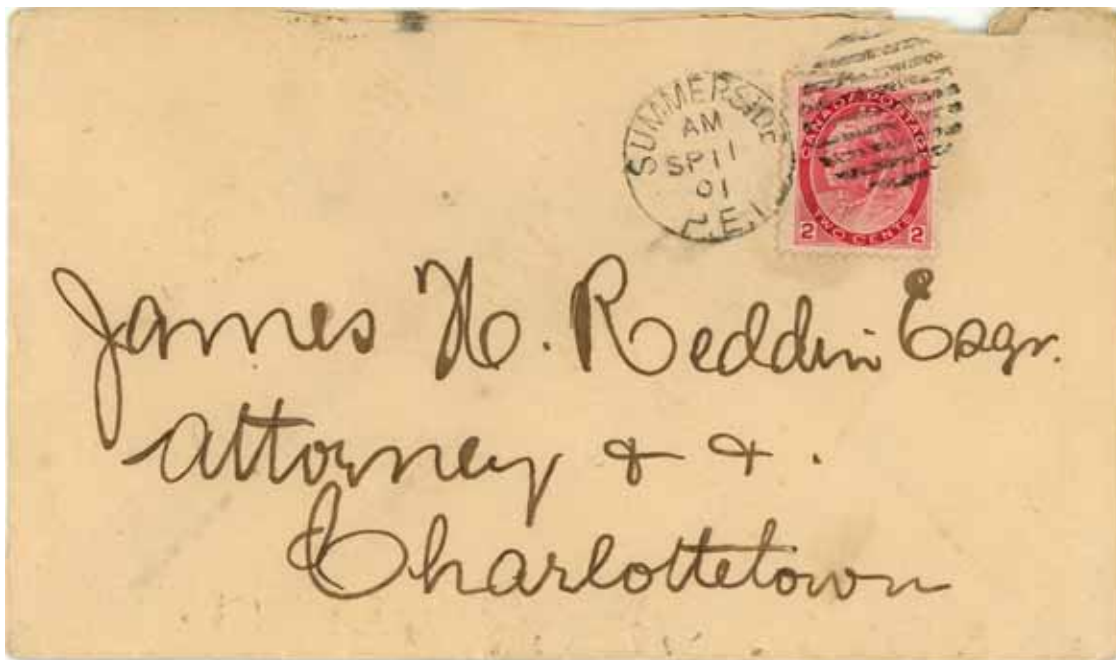 SUMMERSIDE
AM
SP 11
01
P.E.I.
CANADA POSTAGE
TWO CENTS
2 2
James H. Reddin Esqr.
Attorney & &.
Charlottetown